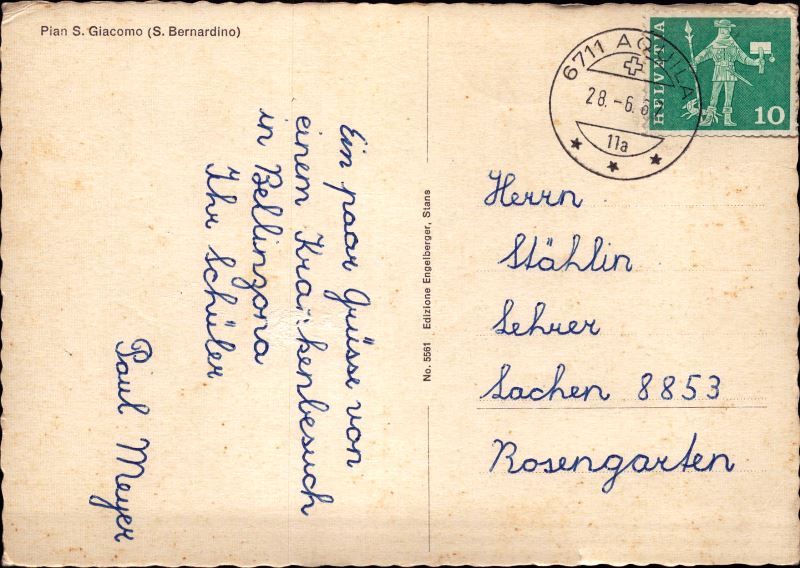 Pian S. Giacomo (S. Bernardino)
Ein paar Grüsse von
einem Krankenbesuch
in Bellinzona
Ihr Schüler
Paul Meyer
No. 5561 Edizione Engelberger, Stans
6711 AQUILA
28.-6.
11a
HELVETIA
10
Herrn
Stählin
Lehrer
Lachen 8853
Rosengarten